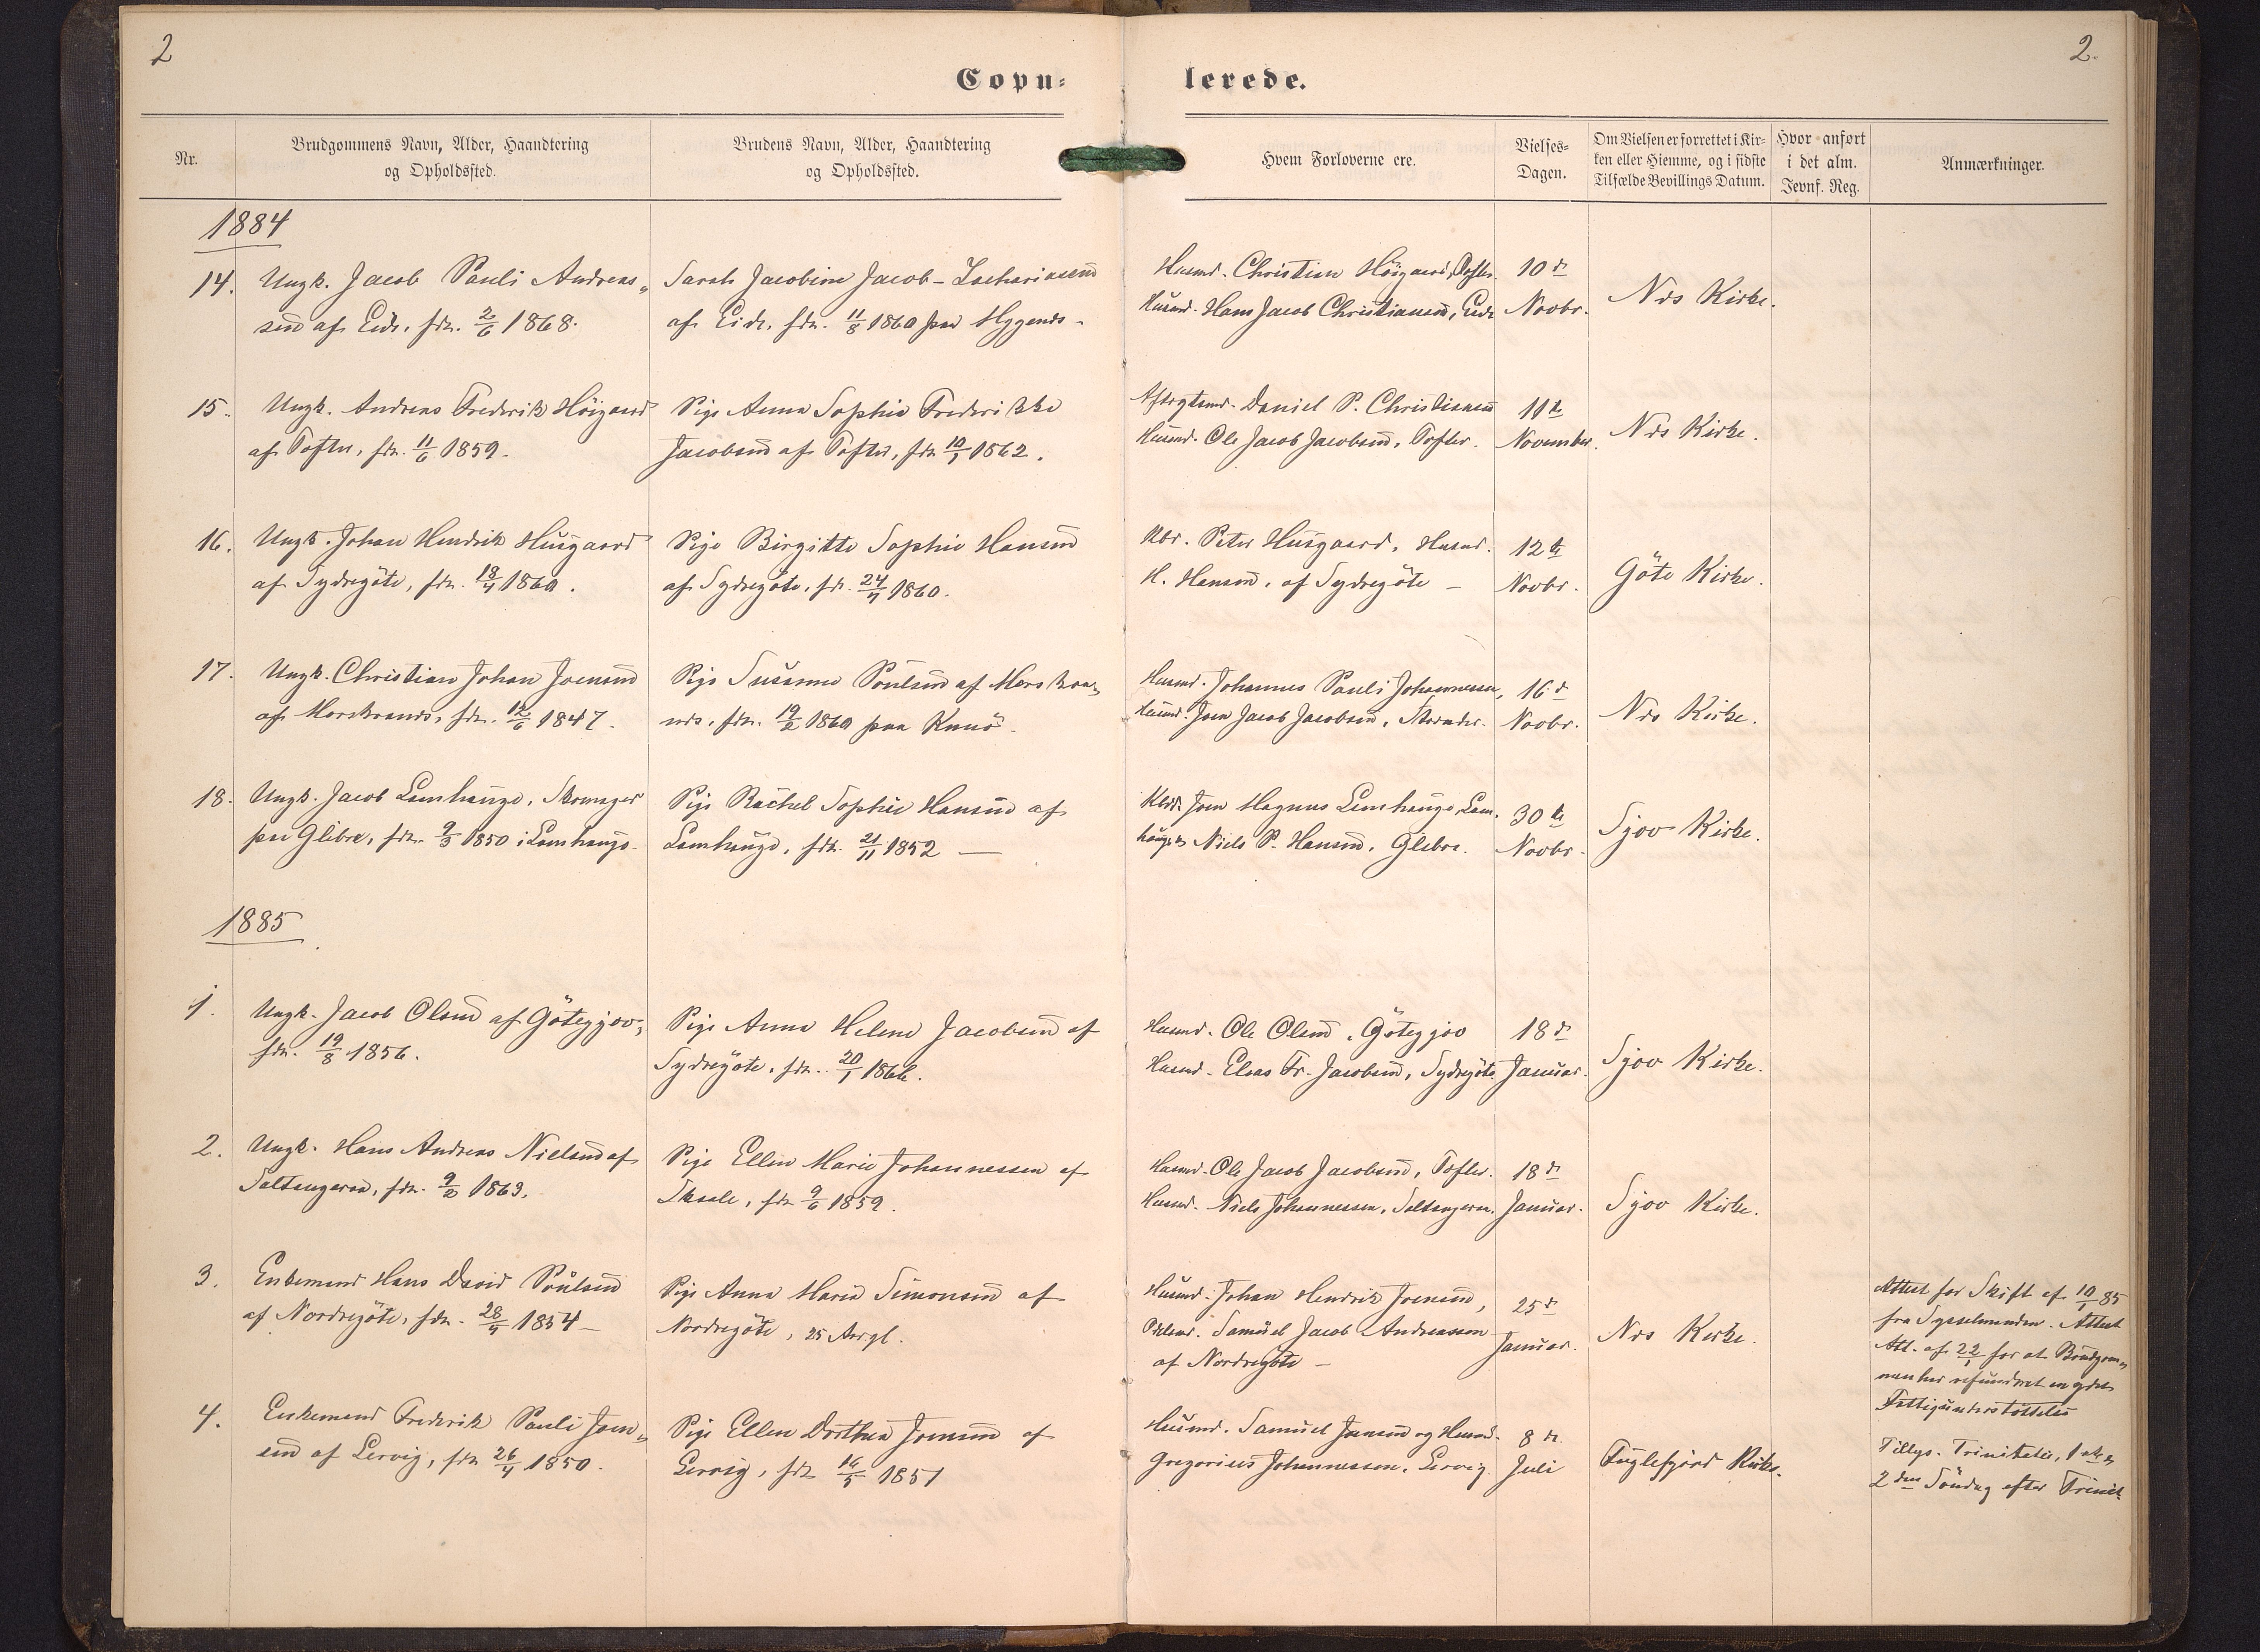 2
2.
Copu-
lerede.
Nr.
Brudgommens Navn, Alder, Haandtering
og Opholdssted.
Brudens Navn, Alder, Haandtering
og Opholdssted.
Hvem Forloverne ere.
Vielses-
Dagen.
Om Vielsen er forrettet i Kir-
ken eller Hiemme, og i sidste
Tilfælde Bevillings Datum.
Hvor anført
i det alm.
Jevnf. Reg.
Anmærkninger.
1884
14.
Ungk. Jacob Pauli Andreas-
sen af Eide, fdt. 2/6 1868.
Sarah Jacobine Jacob-Zachariasen
af Eide, fdt. 11/8 1860 paa
Husmd. Christian Höigaard, Tofter.
Husmd. Hans Jacob Christiansen, Eide
10de
Novbr.
Nes Kirke.
15.
Ungk. Andreas Frederik Höigaard
af Tofter, fdt. 11/6 1859.
Pige Anna Sophie Frederikke
Jacobsen af Tofter, fdt. 10/1 1862.
Aftrgtsmd. Daniel P. Christiansen
Husmd. Ole Jacob Jacobsen, Tofter.
11te
November.
Nes Kirke.
16.
Ungk. Johan Hendrik Husgaard
af Sydregöte, fdt. 18/4 1860.
Pige Birgitte Sophie Hansen
af Sydregöte, fdt. 24/4 1860.
Kbr. Peter Husgaard, Husmd.
H. Hansen, af Sydregöte -
12te
Novbr.
Göte Kirke.
17.
Ungk. Christian Johan Joensen
af Morskranes, fdt. 12/6 1847.
Pige Susanne Poulsen af Morskra-
nes, fdt. 19/2 1860 paa Kunö.
Husmd. Johannes Pauli Johannesen,
Husmd. Joen Jacob Jacobsen, Strender.
16de
Novbr.
Nes Kirke.
18.
Ungk. Jacob Lamhauge, Skomager
paa Glibre, fdt. 9/3 1850 i Lamhauge.
Pige Rachel Sophie Hansen af
Lamhauge, fdt. 21/11 1852 -
Joen Magnus Lamhauge, Lam-
hauge, Niels P. Hansen, Glibre.
30te
Novbr.
Sjov Kirke.
1885
1.
Ungk. Jacob Olsen af Götegjov,
fdt. 19/8 1856.
Pige Anna Helene Jacobsen af
Sydregöte, fdt. 20/1
Husmd. Ole Olsen, Götegjov
Husmd. Elias Fr. Jacobsen, Sydregöte
18de
Januar.
Sjov Kirke.
2.
Ungk. Hans Andreas Nielsen af
Saltangeraa, fdt. 9/2 1863.
Pige Ellen Marie Johannessen af
Skaale, fdt. 9/6 1859.
Husmd. Ole Jacob Jacobsen, Tofter.
Husmd. Niels Johannessen, Saltangeraa.
18de
Januar.
Sjov Kirke.
3.
Enkemand Hans David Poulsen
af Nordregöte, fdt. 28/4 1854 -
Pige Anna Maria Simonsen af
Nordregöte, 25 Aargl.
Husmd. Johan Hendrik Joensen,
Odelsmd. Samuel Jacob Andreassen
af Nordregöte -
25de
Januar.
Nes Kirke.
Attest for Skift af 10/1 85
fra Sysselmanden. Attest
Att. af 22/1 for at Brudgom-
men har refunderet
Fattigunderstöttelse
4.
Enkemand Frederik Pauli Joen-
sen af Lervig, fdt 26/4 1850.
Pige Ellen Dorthea Joensen af
Lervig, fdt 14/5 1851
Husmd. Samuel Joensen og Husmd.
Gregorius Johannessen, Lervig.
8de
Juli
Fuglefjord Kirke.
Tillys. Trinitatis, 1ste &
2den Söndag efter Trinit.